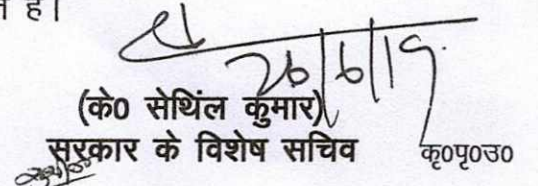 है।
26/6/19
(के0 सेथिंल कुमार)
सरकार के विशेष सचिव कृ०पृ०उ०